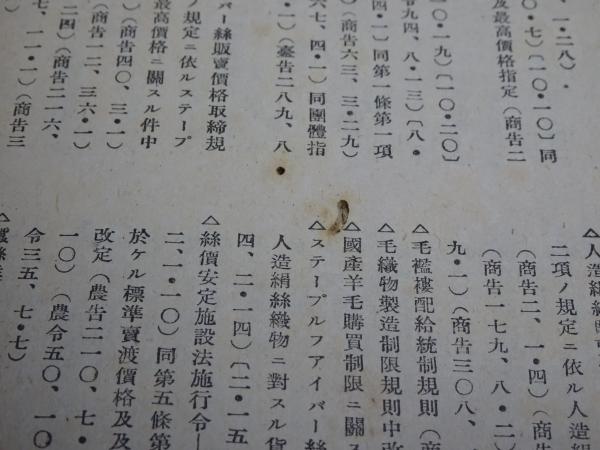 一・二八）・
〇・七〕〔一〇・一〇〕同
及最高價格指定（商告二
〇・一九〕〔一〇・二〇〕
令九四、八・一三）〔八・
四・一〕同第一條第一項
（商告六三、三・二九）
六七、四・一）同團體指
・一）（臺告二八九、八・
バー絲販賣價格取締規
ノ規定ニ依ルステープ
最高價格ニ關スル件中
（商告四〇、三・一）
（商告一二、三六・一）
二四）（商告二一六、
七、一一・一）（商告三
△人造絹絲
二項ノ規定ニ依ル人造絹
（商告二、一・四）（商
（商告一七九、八・二）
九・一）（商告三〇八、
△毛襤褸配給統制規則（商
△毛織物製造制限規則中改
△國產羊毛購買制限ニ關ス
△ステープルフアイバー絲
人造絹絲織物ニ對スル貨
四、二・一四）〔二・一五
△絲價安定施設法施行令—
二、一・一〇）同第五條第
於ケル標準賣渡價格及
改定（農告二一〇、七・
一〇）（農令五〇、一〇
令三五、七・七）